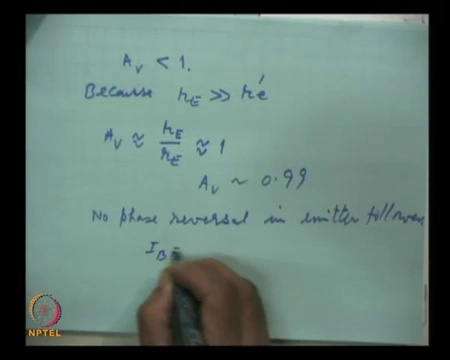 A_V < 1.
Because r_E >> r'e
A_V ≈ r_E/r_E ≈ 1
A_V ~ 0.99
No phase reversal in emitter follower
I_B =
NPTEL